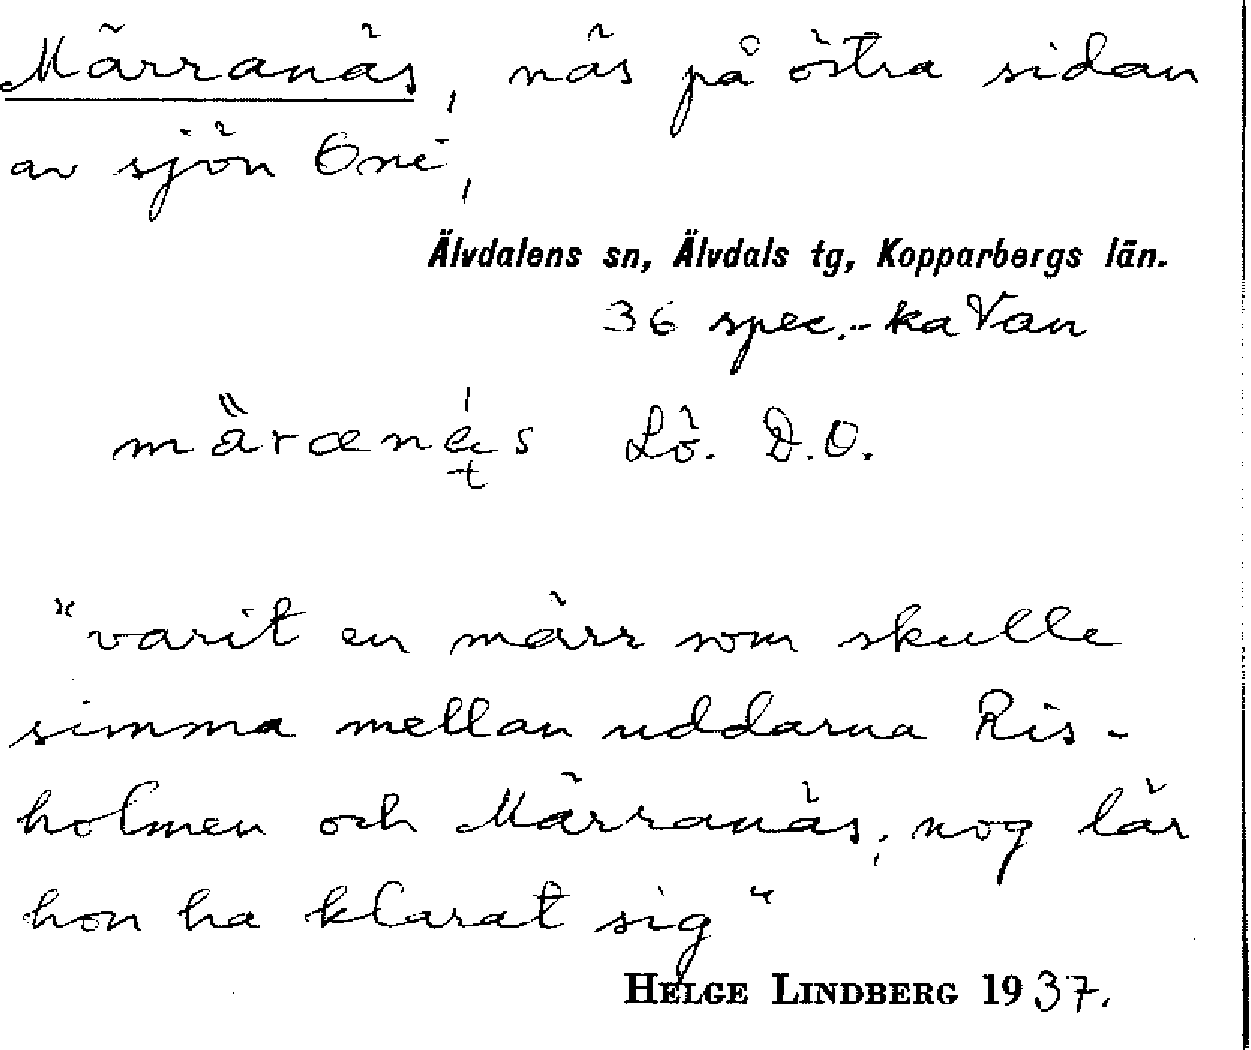 Märranäs, näs på östra sidan
av sjön Onè,
Älvdalens sn, Älvdals tg, Kopparbergs län.
36 spec.-kaVan
Lö. D.O.
"varit en märr som skulle
simma mellan uddarna Ris-
holmen och Märranäs; nog lär
hon ha klarat sig"
HELGE LINDBERG 1937.